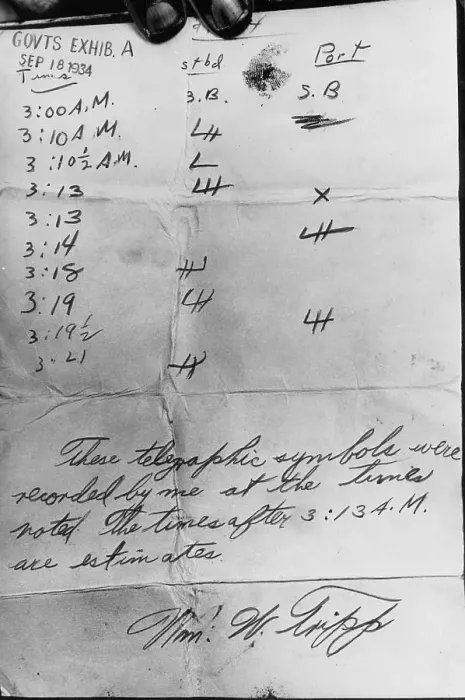 GOVTS EXHIB. A
SEP 18 1934
Times stbd Port
3:00 A.M. S.B. S.B
3:10 A.M.
3:10½ A.M.
3:13 X
3:13
3:14
3:18
3:19
3:19½
3:21
These telegraphic symbols were
recorded by me at the times
noted. The times after 3:13 A.M.
are estimates
Wm! W. Tripp